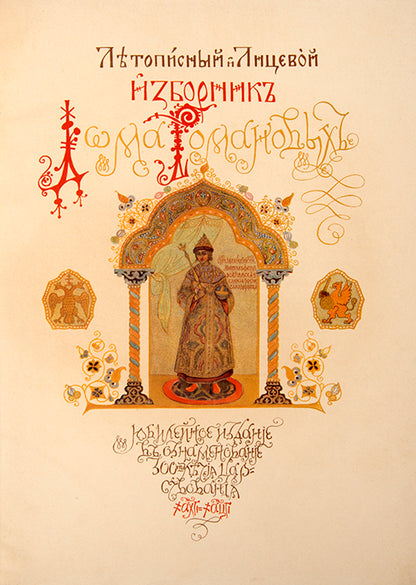 Лѣтописный и Лицевой
Изборникъ
Дѡма Романовыхъ
Юбилейное изданіе
въ ознаменованіе
300-лѣтія цар-
ствованія
҂ахгі–҂ацгі